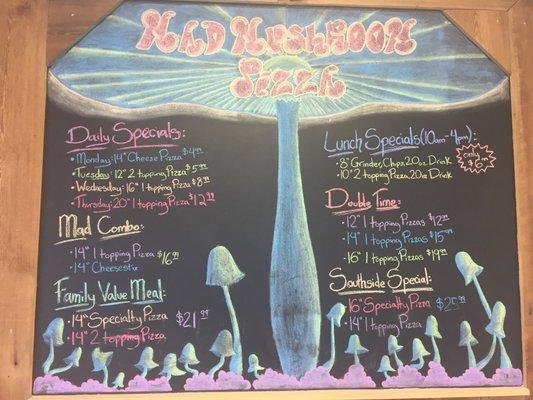 Mad Mushroom
Pizza
Daily Specials:
• Monday: 14" Cheese Pizza $4.99
• Tuesday: 12" 2 topping Pizza $5.99
• Wednesday: 16" 1 topping Pizza $8.99
• Thursday: 20" 1 topping Pizza $12.99
Mad Combo:
• 14" 1 topping Pizza
• 14" Cheesestix
$16.99
Family Value Meal:
• 14" Specialty Pizza
• 14" 2 topping Pizza
$21.99
Lunch Specials (10am-4pm):
• 8" Grinder, Chips, 20oz. Drink
• 10" 2 topping Pizza, 20oz Drink
only
$6.99
Double Time:
• 12" 1 topping Pizzas $12.99
• 14" 1 topping Pizzas $15.99
• 16" 1 topping Pizzas $19.99
Southside Special:
• 16" Specialty Pizza
• 14" 1 topping Pizza